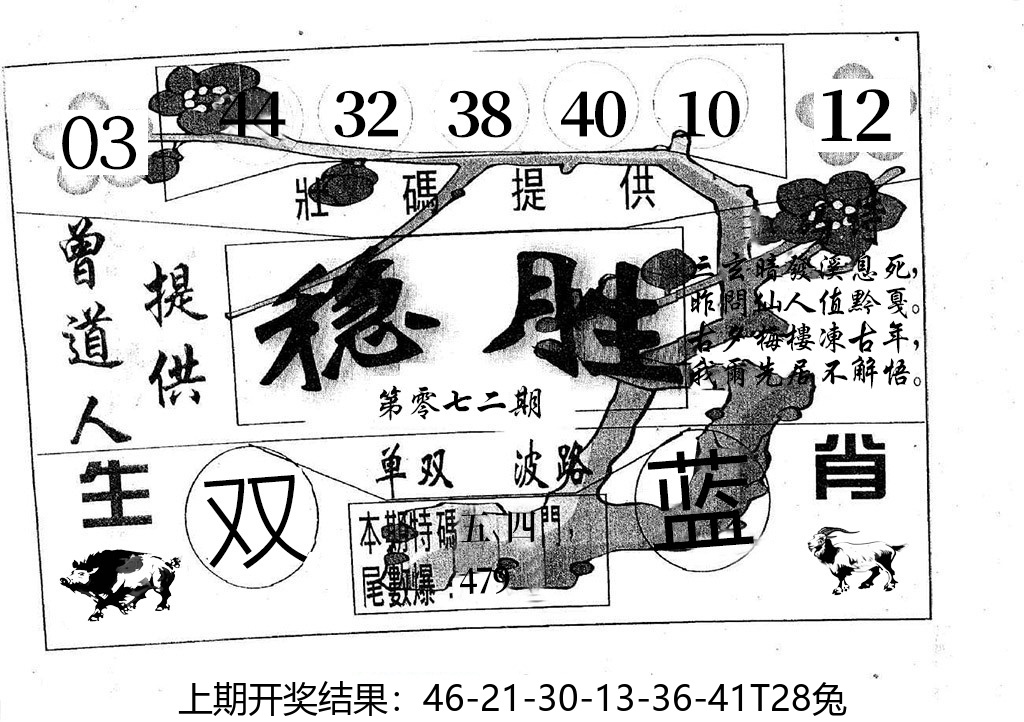 03 44 32 38 40 10 12
壯碼提供
特
曾道人
提供
稳胜
第零七二期
三玄暗發溪息死，
昨問仙人值黔戛。
古夕梅樓凍古年，
我爾先居不解悟。
单双 波路
生肖
双
蓝
本期特碼五、四門，
尾數爆：479
上期开奖结果：46-21-30-13-36-41T28兔